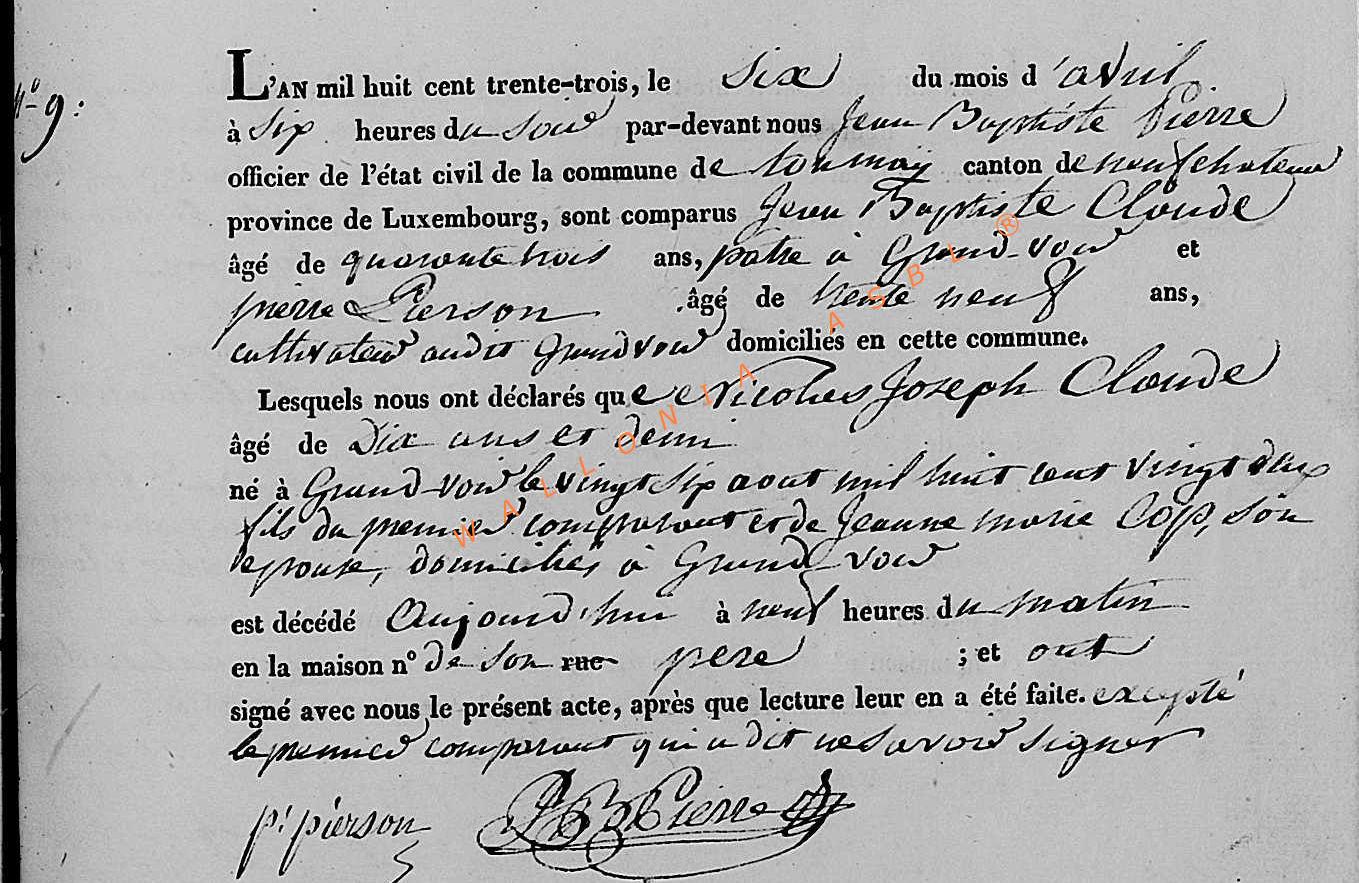 N° 9:
L'AN mil huit cent trente-trois, le Six du mois d'avril
à Six heures du Soir par-devant nous Jean Baptiste Pierre
officier de l'état civil de la commune de tournay canton de neufchateau
province de Luxembourg, sont comparus Jean Baptiste Claude
âgé de quarante trois ans, patre à Grand-voir et
pierre Pierson âgé de trente neuf ans,
cultivateur audit Grandvoir domiciliés en cette commune.
Lesquels nous ont déclarés que Nicolas Joseph Claude
âgé de Dix ans et demi
né à Grand-voir le vingt Six aout mil huit cent vingt deux
fils du premier comparant et de Jeanne marie Cop, son
epouse, domiciliés à Grand-voir
est décédé Aujourd'hui à neuf heures du matin
en la maison n° de son rue pere ; et ont
signé avec nous le présent acte, après que lecture leur en a été faite. excepté
le premier comparant qui a dit ne Savoir signer
pr pierson JB Pierre
WALLONIA ASBL ®